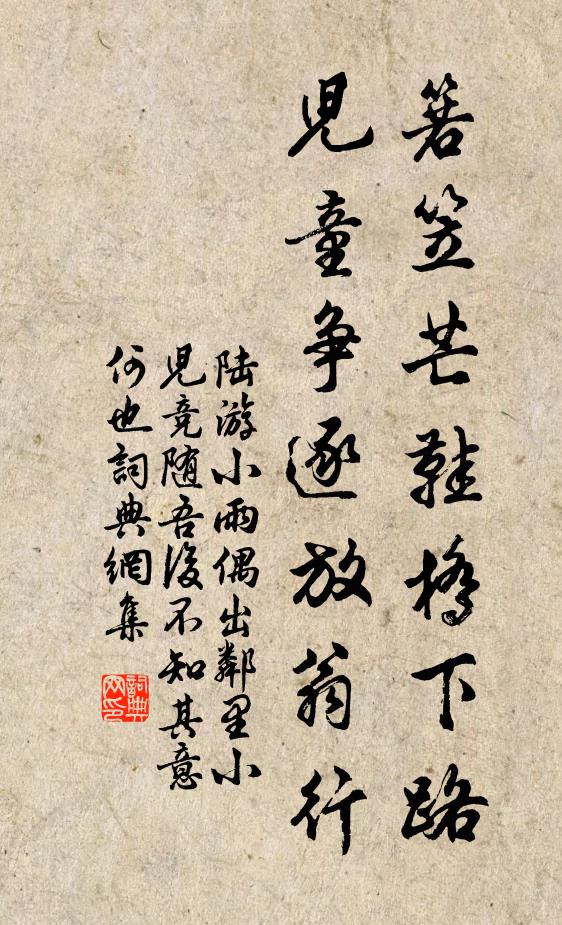 箬笠芒鞋橋下路
兒童爭逐放翁行
陆游小雨偶出鄰里小
兒竞随吾後不知其意
何也詞典網集
詞典
网印